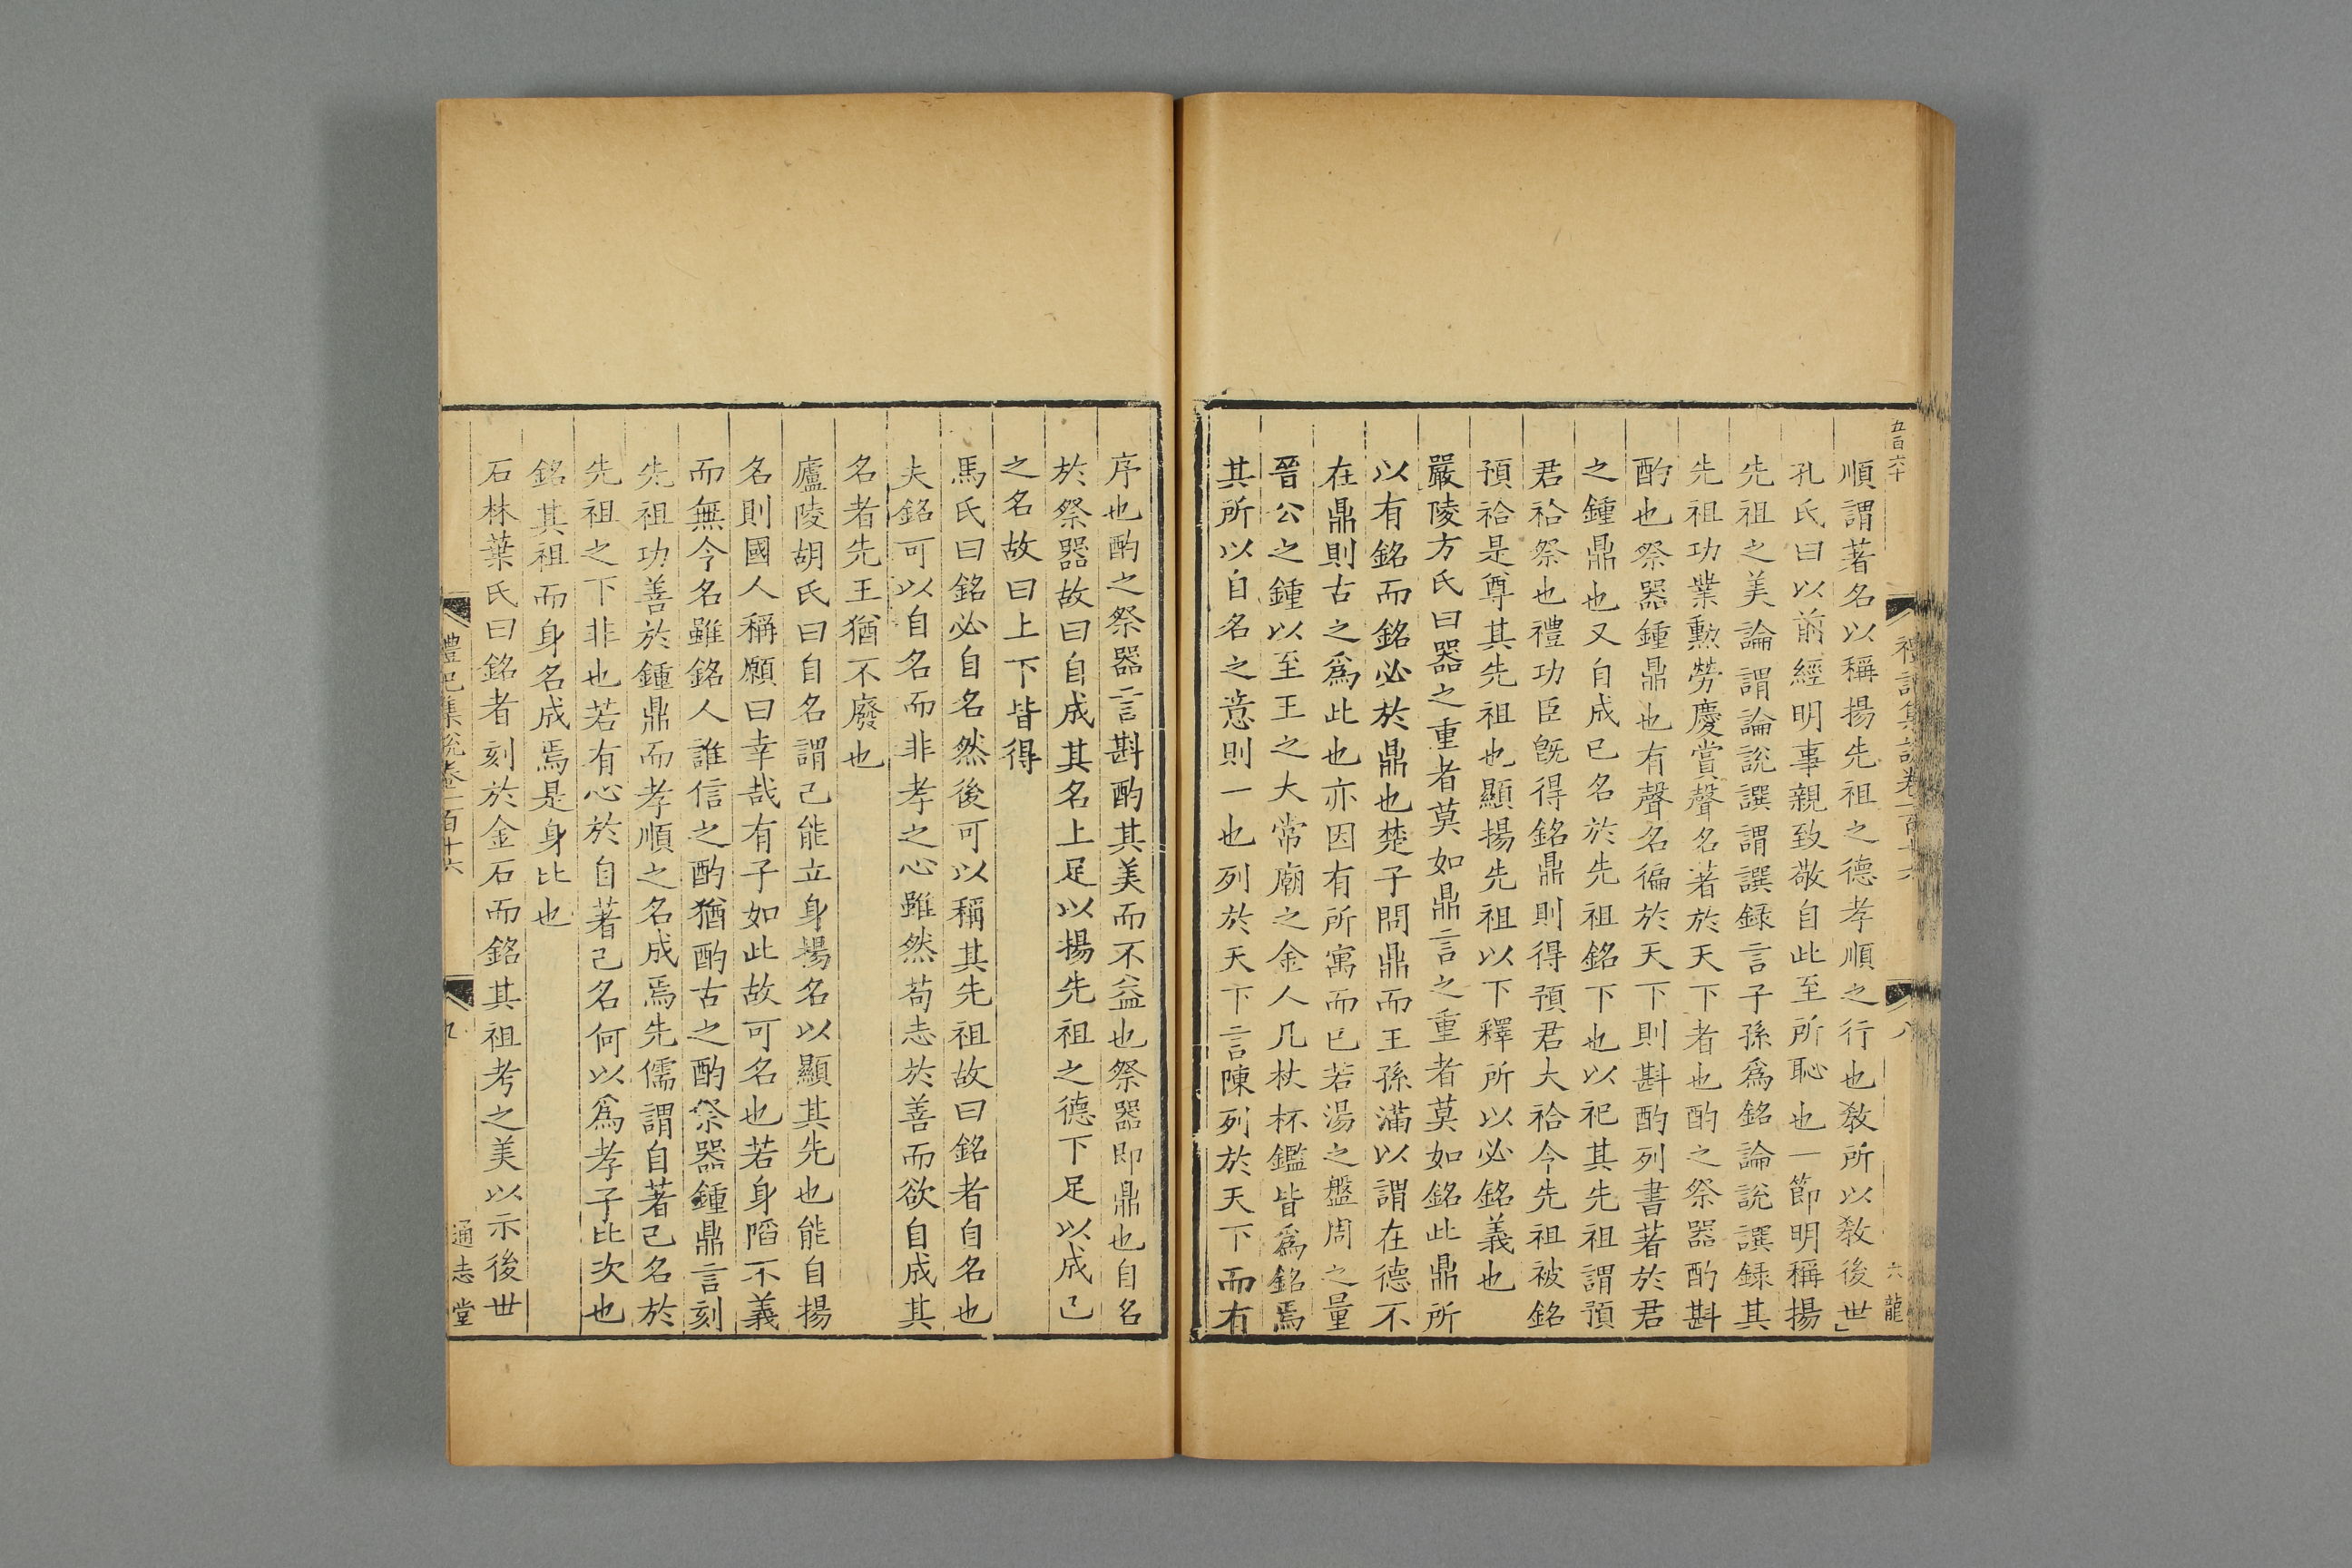 五百六十
禮記集說卷一百十六
八
六 龍
順謂著名以稱揚先祖之德孝順之行也敎所以敎後世
孔氏曰以前經明事親致敬自此至所恥也一節明稱揚
先祖之美論謂論說譔謂譔録言子孫爲銘論說譔録其
先祖功業勲勞慶賞聲名著於天下者也酌之祭器酌斟
酌也祭器鍾鼎也有聲名徧於天下則斟酌列書著於君
之鍾鼎也又自成已名於先祖銘下也以祀其先祖謂預
君祫祭也禮功臣旣得銘鼎則得預君大祫令先祖被銘
預祫是尊其先祖也顯揚先祖以下釋所以必銘義也
嚴陵方氏曰器之重者莫如鼎言之重者莫如銘此鼎所
以有銘而銘必於鼎也楚子問鼎而王孫滿以謂在德不
在鼎則古之爲此也亦因有所寓而已若湯之盤周之量
晉公之鍾以至王之大常廟之金人几杖杯鑑皆爲銘焉
其所以自名之意則一也列於天下言陳列於天下而有
序也酌之祭器言斟酌其美而不益也祭器即鼎也自名
於祭器故曰自成其名上足以揚先祖之德下足以成己
之名故曰上下皆得
馬氏曰銘必自名然後可以稱其先祖故曰銘者自名也
夫銘可以自名而非孝之心雖然苟志於善而欲自成其
名者先王猶不廢也
廬陵胡氏曰自名謂己能立身揚名以顯其先也能自揚
名則國人稱願曰幸哉有子如此故可名也若身陷不義
而無令名雖銘人誰信之酌猶酌古之酌祭器鍾鼎言刻
先祖功善於鍾鼎而孝順之名成焉先儒謂自著己名於
先祖之下非也若有心於自著己名何以爲孝子比次也
銘其祖而身名成焉是身比也
石林葉氏曰銘者刻於金石而銘其祖考之美以示後世
禮記集說卷一百十六
九
通志堂